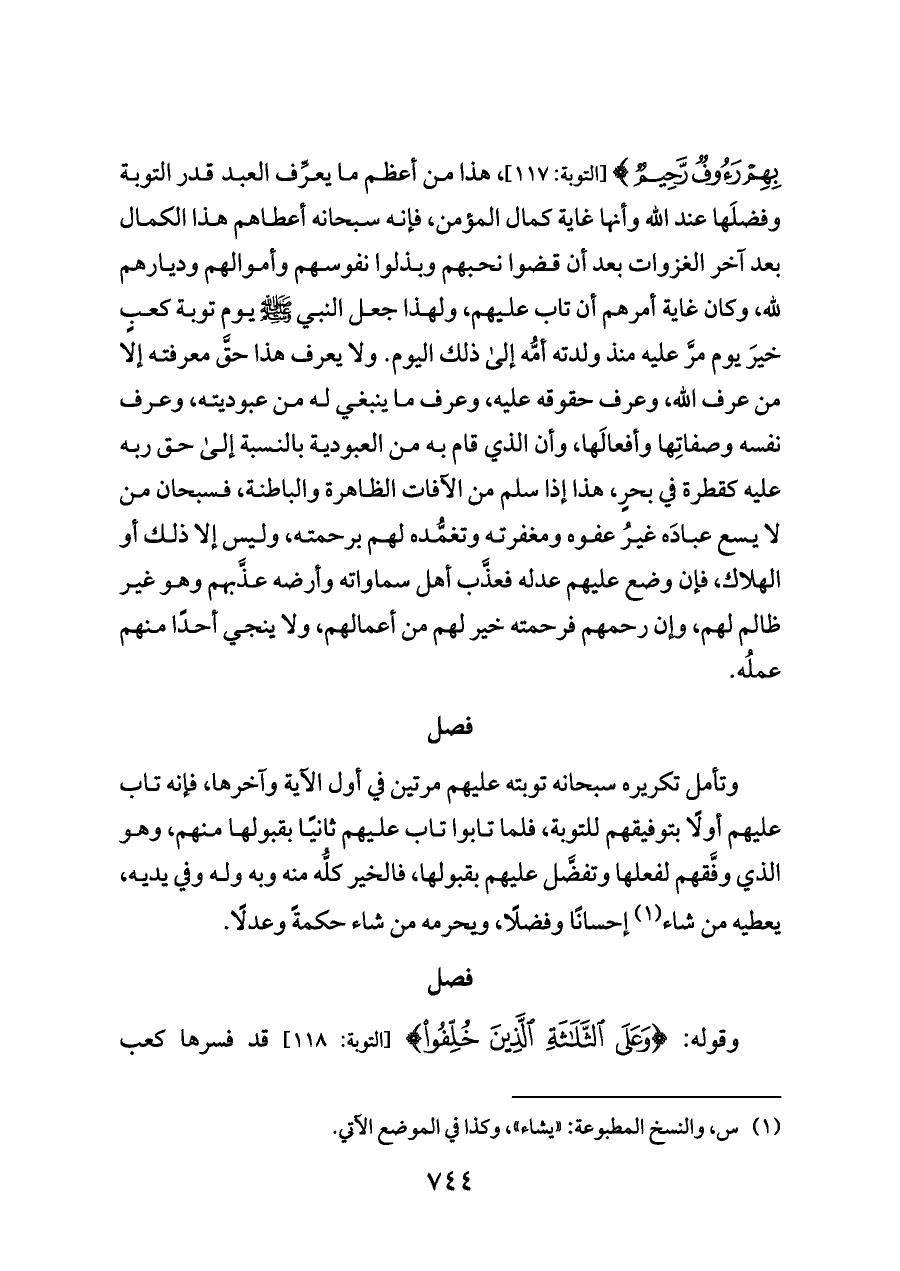 بِهِمْ رَءُوفٌ رَّحِيمٌ ﴾ [التوبة: ١١٧]، هذا من أعظم ما يعرِّف العبد قدر التوبة
وفضلَها عند الله وأنها غاية كمال المؤمن، فإنه سبحانه أعطاهم هذا الكمال
بعد آخر الغزوات بعد أن قضوا نحبهم وبذلوا نفوسهم وأموالهم وديارهم
لله، وكان غاية أمرهم أن تاب عليهم، ولهذا جعل النبي ﷺ يوم توبة كعبٍ
خيرَ يوم مرَّ عليه منذ ولدته أمُّه إلىٰ ذلك اليوم. ولا يعرف هذا حقَّ معرفته إلا
من عرف الله، وعرف حقوقه عليه، وعرف ما ينبغي له من عبوديته، وعرف
نفسه وصفاتِها وأفعالَها، وأن الذي قام به من العبودية بالنسبة إلىٰ حق ربه
عليه كقطرة في بحرٍ، هذا إذا سلم من الآفات الظاهرة والباطنة، فسبحان من
لا يسع عبادَه غيرُ عفوه ومغفرته وتغمُّده لهم برحمته، وليس إلا ذلك أو
الهلاك، فإن وضع عليهم عدله فعذَّب أهل سماواته وأرضه عذَّبهم وهو غير
ظالم لهم، وإن رحمهم فرحمته خير لهم من أعمالهم، ولا ينجي أحدًا منهم
عملُه.
فصل
وتأمل تكريره سبحانه توبته عليهم مرتين في أول الآية وآخرها، فإنه تاب
عليهم أولًا بتوفيقهم للتوبة، فلما تابوا تاب عليهم ثانيًا بقبولها منهم، وهو
الذي وفَّقهم لفعلها وتفضَّل عليهم بقبولها، فالخير كلُّه منه وبه وله وفي يديه،
يعطيه من شاء(١) إحسانًا وفضلًا، ويحرمه من شاء حكمةً وعدلًا.
فصل
وقوله: ﴿وَعَلَى ٱلثَّلَٰثَةِ ٱلَّذِينَ خُلِّفُوا۟﴾ [التوبة: ١١٨] قد فسرها كعب
(١) س، والنسخ المطبوعة: «يشاء»، وكذا في الموضع الآتي.
٧٤٤